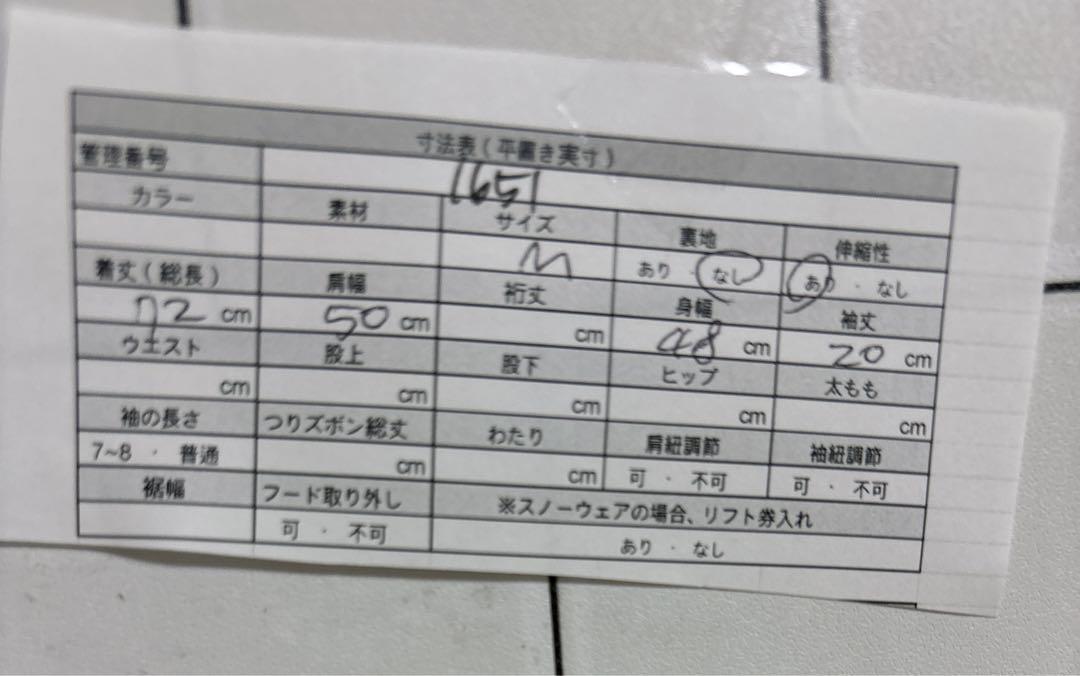 寸法表(平置き実寸)
管理番号 1651
カラー 素材 サイズ 裏地 伸縮性
M あり ・ なし あり ・ なし
着丈(総長) 肩幅 裄丈 身幅 袖丈
72 cm 50 cm cm 48 cm 20 cm
ウエスト 股上 股下 ヒップ 太もも
cm cm cm cm cm
袖の長さ つりズボン総丈 わたり 肩紐調節 袖紐調節
7~8 ・ 普通 cm cm 可 ・ 不可 可 ・ 不可
裾幅 フード取り外し ※スノーウェアの場合、リフト券入れ
可 ・ 不可 あり ・ なし